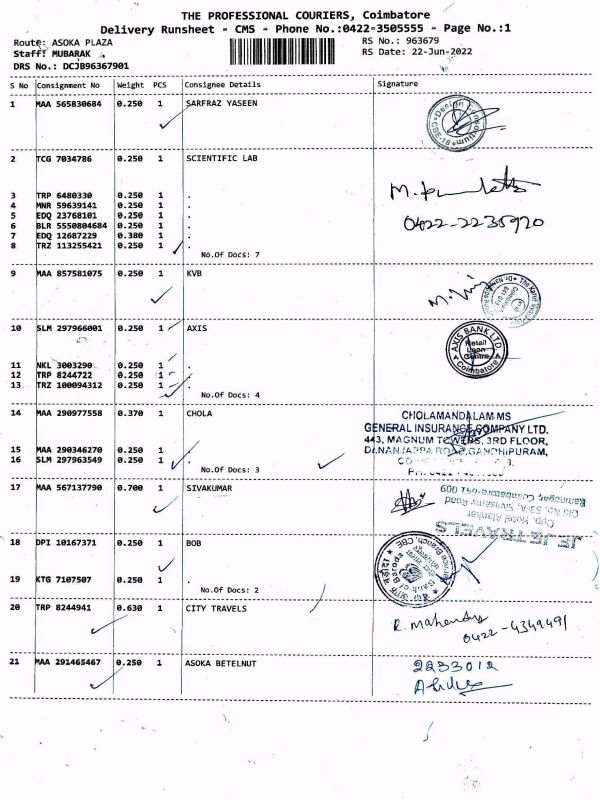 THE PROFESSIONAL COURIERS, Coimbatore
Delivery Runsheet - CMS - Phone No.:0422-3505555 - Page No.:1
Route: ASOKA PLAZA
RS No.: 963679
Staff: MUBARAK
RS Date: 22-Jun-2022
DRS No.: DCJB96367901
S No Consignment No Weight PCS Consignee Details Signature
1 MAA 565830684 0.250 1 SARFRAZ YASEEN
2 TCG 7034786 0.250 1 SCIENTIFIC LAB
3 TRP 6480330 0.250 1 .
4 MNR 59639141 0.250 1 .
5 EDQ 23768101 0.250 1 .
6 BLR 5550804684 0.250 1 .
7 EDQ 12687229 0.380 1 .
8 TRZ 113255421 0.250 1 .
0422-2235920
No.Of Docs: 7
9 MAA 857581075 0.250 1 KVB
10 SLM 297966001 0.250 1 AXIS
AXIS BANK LTD.
Retail
Loan
Centre
Coimbatore
11 NKL 3003290 0.250 1 .
12 TRP 8244722 0.250 1 .
13 TRZ 100094312 0.250 1 .
No.Of Docs: 4
14 MAA 290977558 0.370 1 CHOLA
CHOLAMANDALAM MS
GENERAL INSURANCE COMPANY LTD.
443, MAGNUM TOWERS, 3RD FLOOR,
GANDHIPURAM,
15 MAA 290346270 0.250 1 .
16 SLM 297963549 0.250 1 .
No.Of Docs: 3
17 MAA 567137790 0.700 1 SIVAKUMAR
JE JE TRAVELS
Opp. Hotel Alankar
Old No. 53-A, Sivasamy Road
Ramnagar, Coimbatore-641 009
18 DPI 10167371 0.250 1 BOB
Bank of Baroda
19 KTG 7107507 0.250 1 .
No.Of Docs: 2
20 TRP 8244941 0.630 1 CITY TRAVELS
R. Mahendra
0422-4349491
21 MAA 291465467 0.250 1 ASOKA BETELNUT
2233012